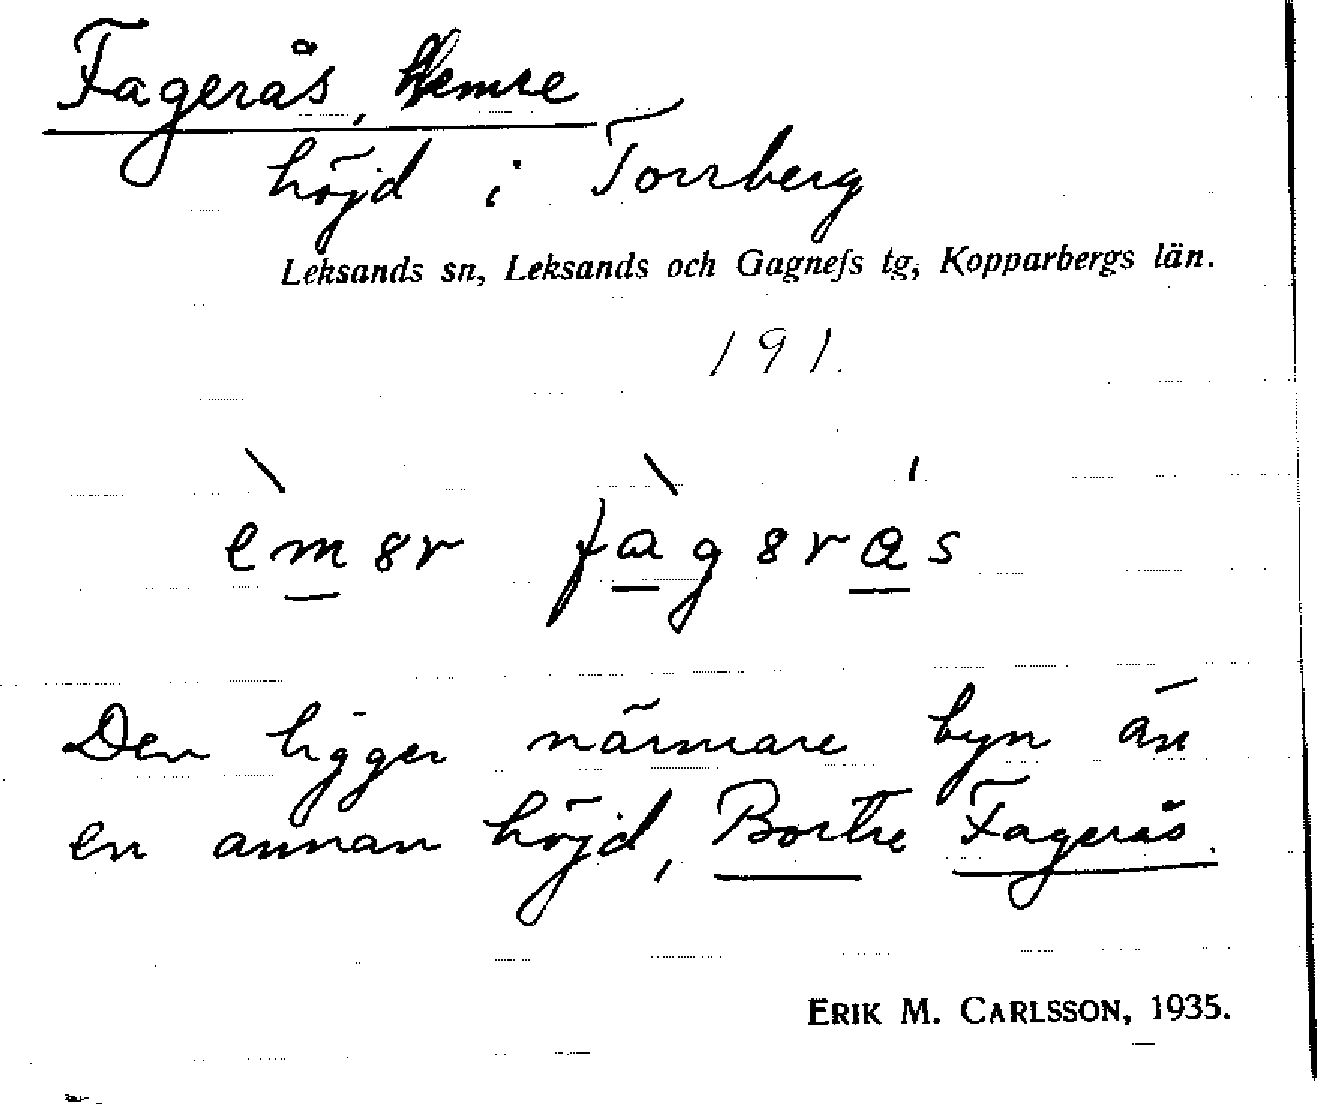 Fagerås, Hemre
höjd i Torrberg
Leksands sn, Leksands och Gagnefs tg, Kopparbergs län.
191.
èmər fàgərás
Den ligger närmare byn än
en annan höjd, Bortre Fagerås.
ERIK M. CARLSSON, 1935.